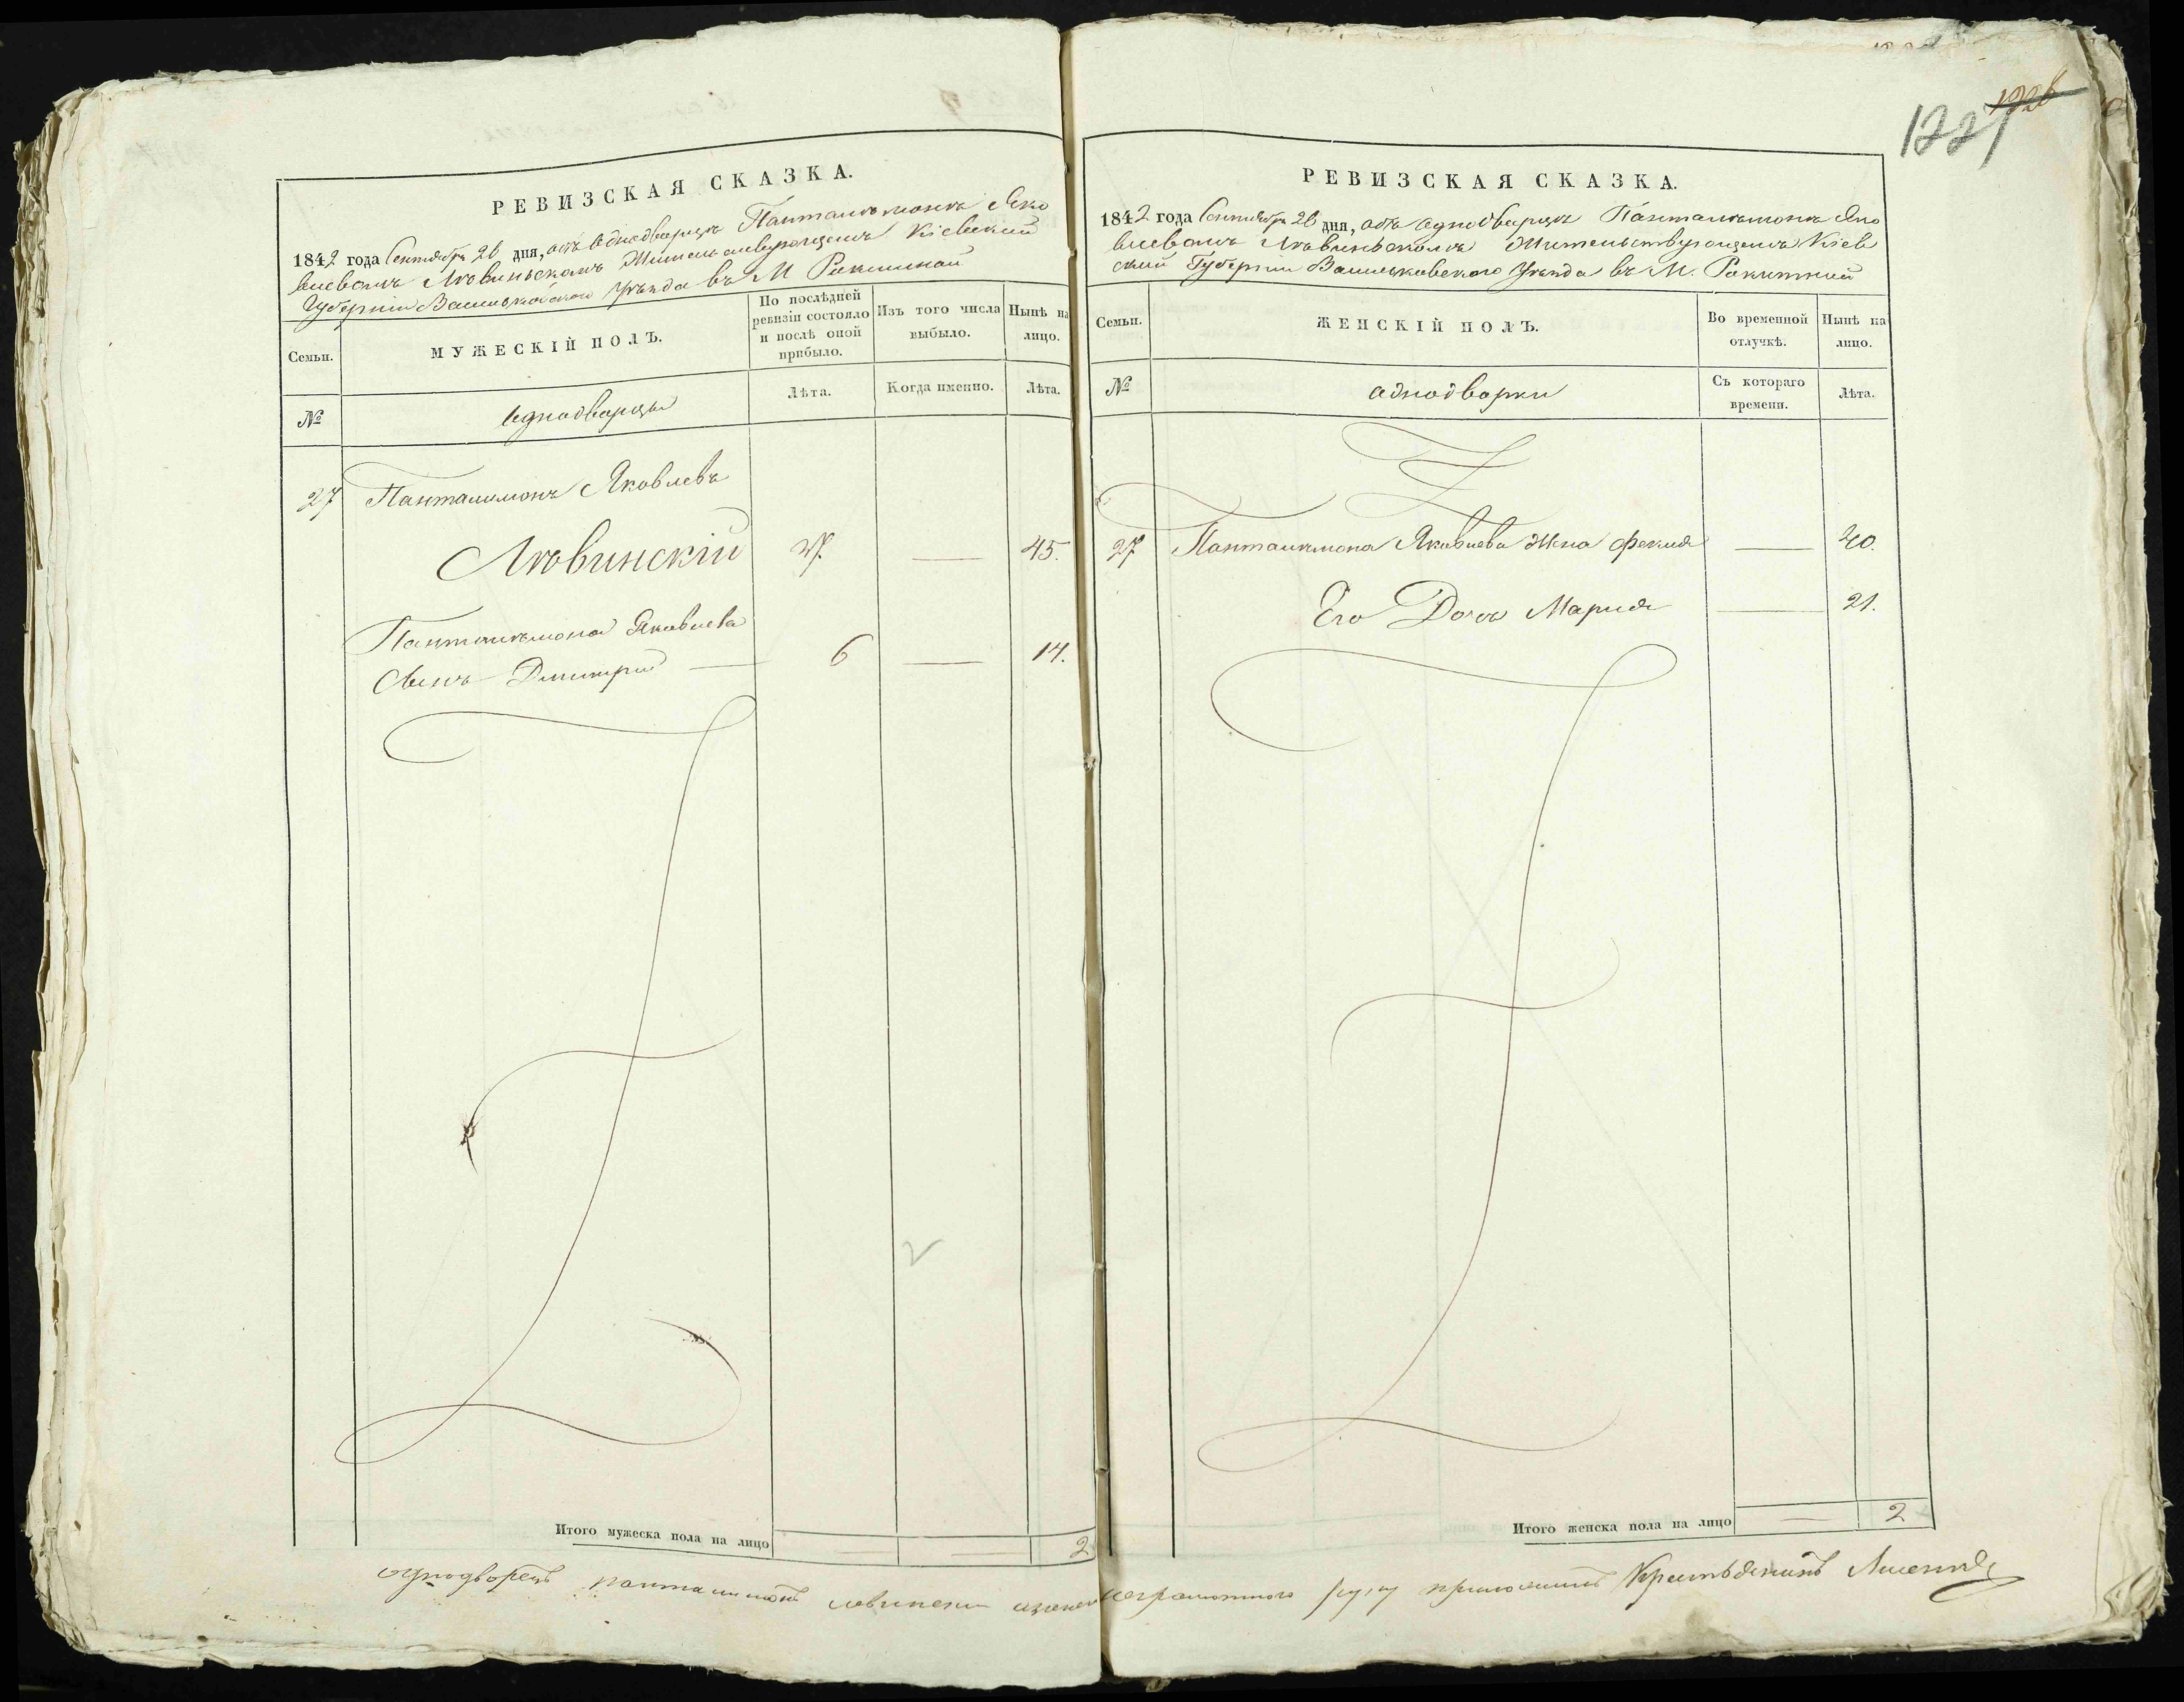 РЕВИЗСКАЯ СКАЗКА.
1842 года Сентября 26 дня, объ однодворцѣ Панталимонѣ Яко
влевомъ Лювиньскомъ Жительствующемъ Кіевской
Губерніи Васильковского Уѣзда въ М Рокитной
Семьи.
МУЖЕСКІЙ ПОЛЪ.
По послѣдней ревизіи состояло и послѣ оной прибыло.
Изъ того числа выбыло.
Нынѣ на лицо.
№
Однодворцы
Лѣта.
Когда именно.
Лѣта.
27 Панталимонъ Яковлевъ
Лювинскій 37. — 45.
Панталимона Яковлева
Сынъ Дмитрій — 6 — 14.
2
Итого мужеска пола на лицо — — 2
1226
1221
РЕВИЗСКАЯ СКАЗКА.
1842 года Сентября 26 дня, объ однодворцѣ Панталимонѣ Яко
влевомъ Лювиньскомъ Жительствующемъ Кіев
ской Губерніи Васильковского Уѣзда въ М. Рокитной
Семьи.
ЖЕНСКІЙ ПОЛЪ.
Во временной отлучкѣ.
Нынѣ на лицо.
№
однодворки
Съ котораго времени.
Лѣта.
27 Панталимона Яковлева Жена Фекла — 40.
Его Дочь Марія — 21.
Итого женска пола на лицо — 2
однодворецъ панталимонъ левински неграмотного руку приложилъ Крестьянинъ